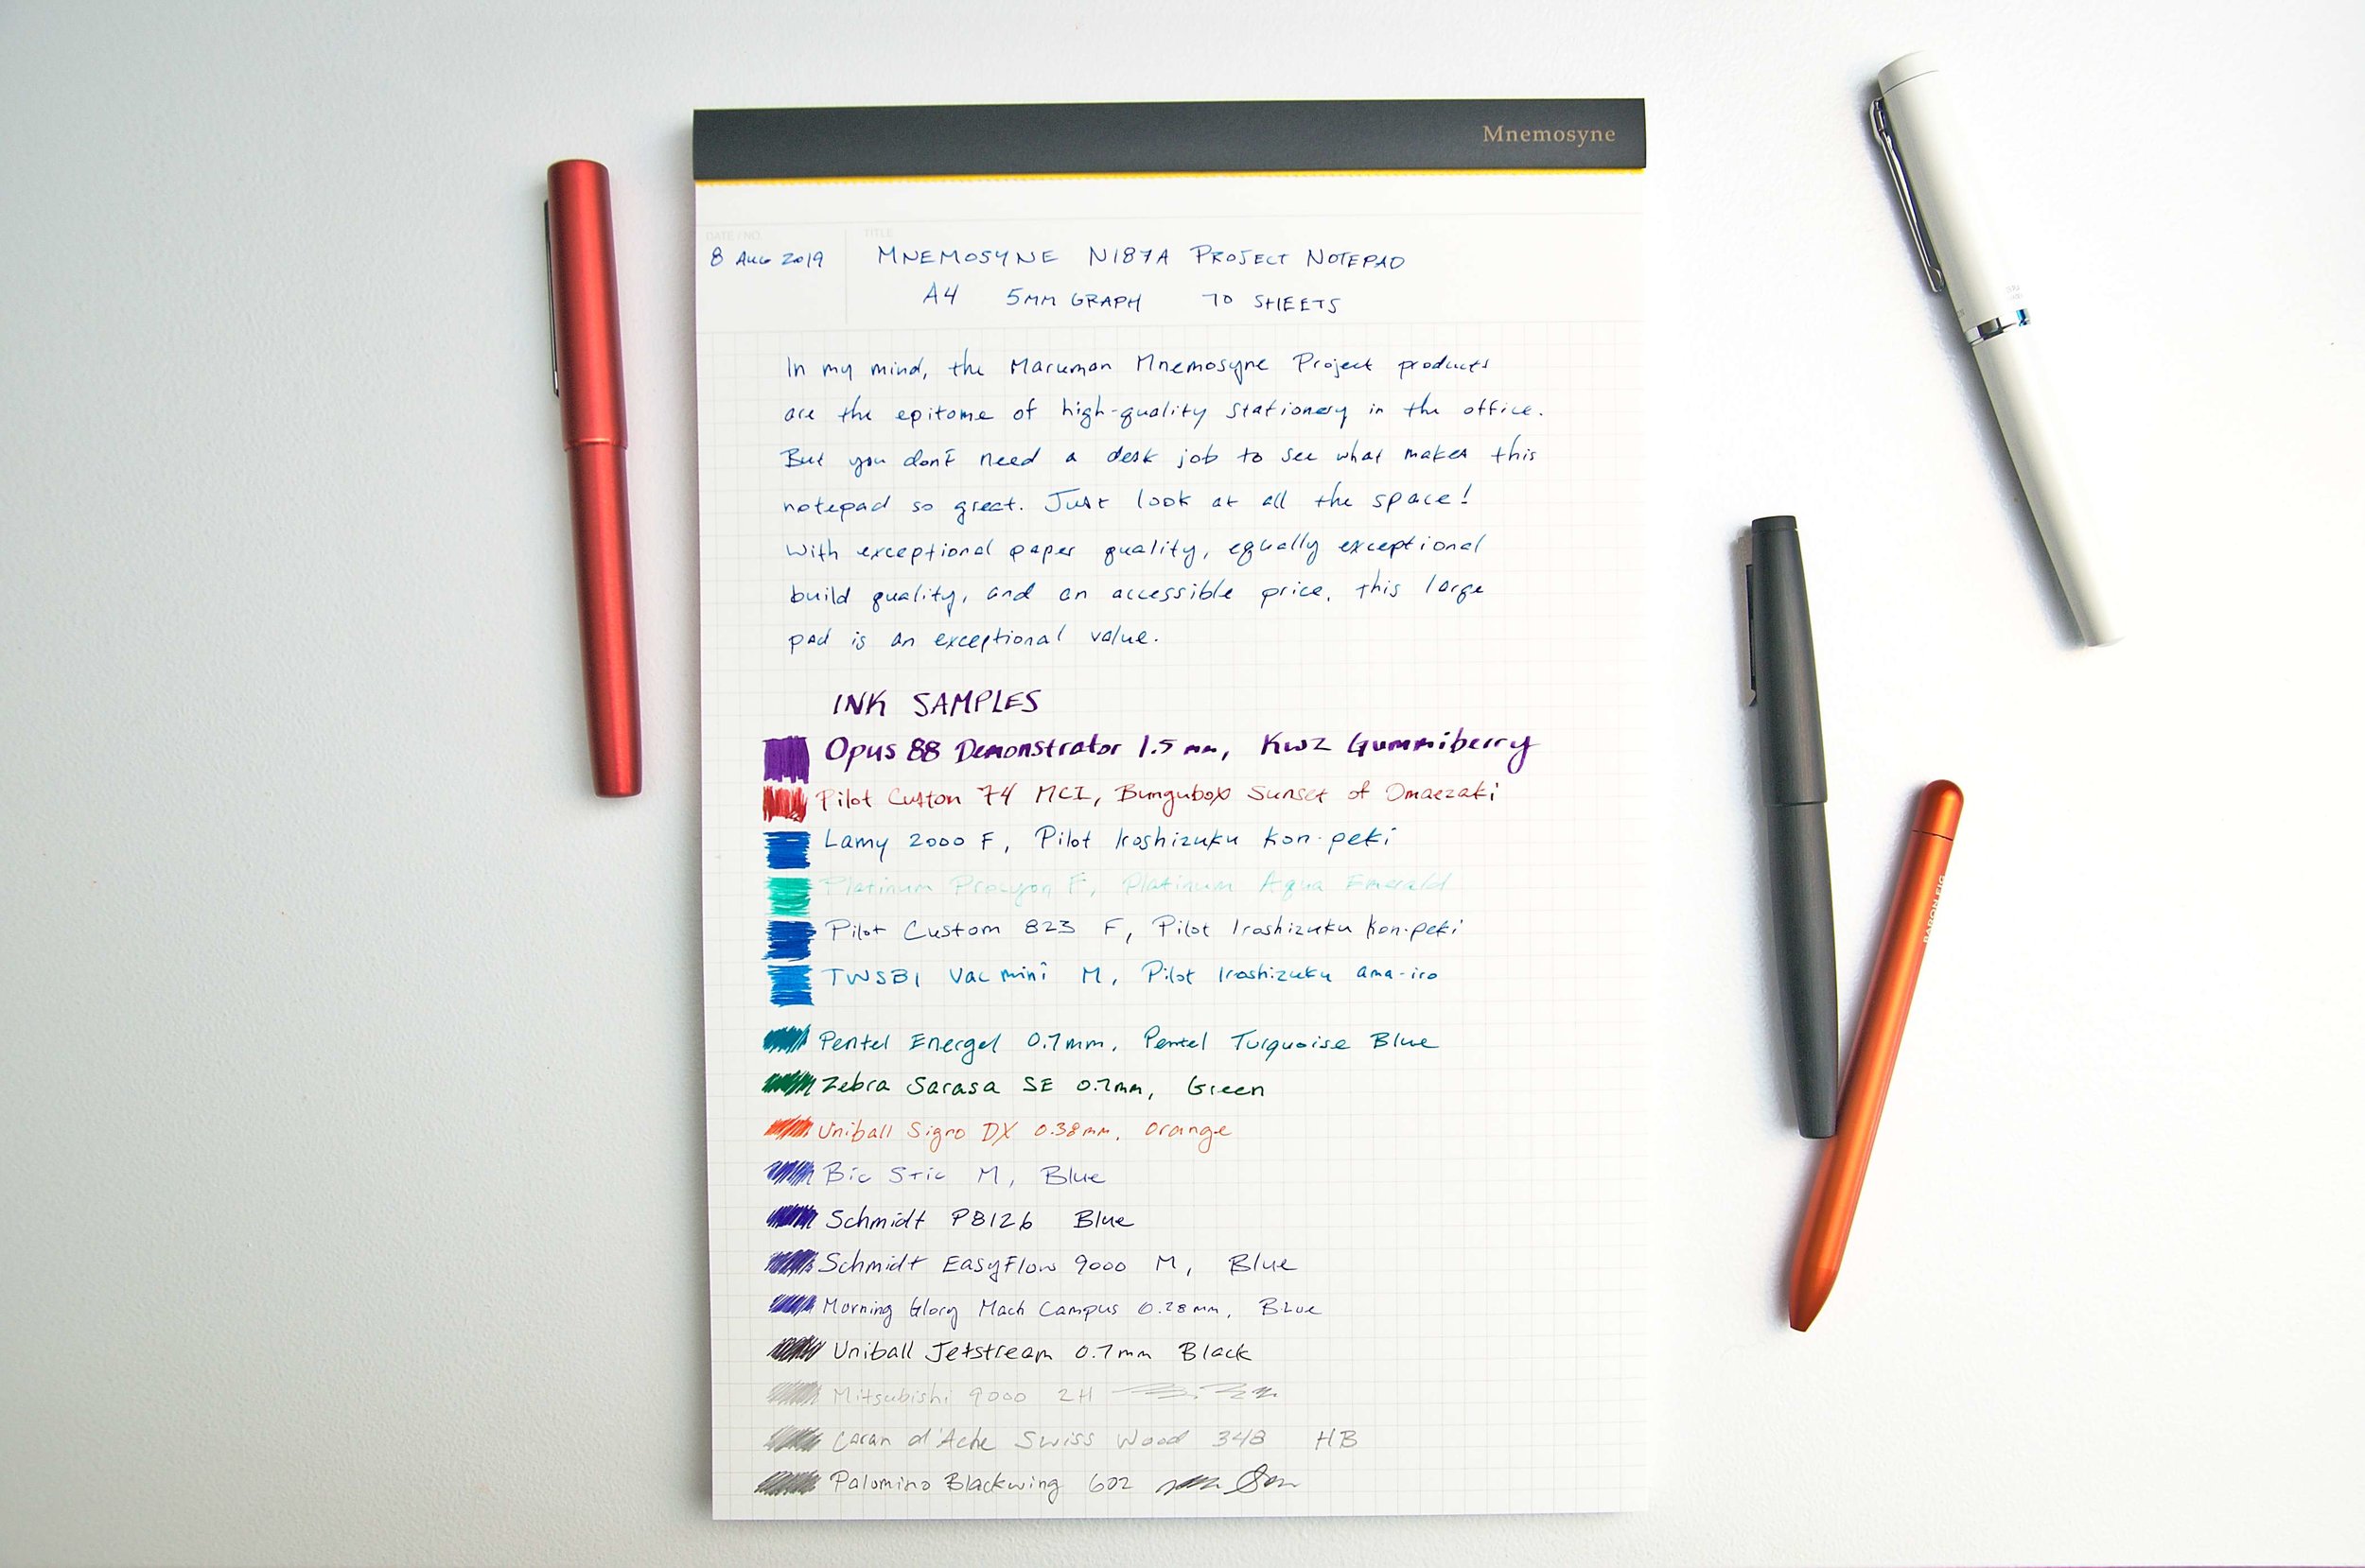 Mnemosyne
DATE / NO. TITLE
8 AUG 2019 MNEMOSYNE N187A PROJECT NOTEPAD
A4 5MM GRAPH 70 SHEETS
In my mind, the Maruman Mnemosyne Project products
are the epitome of high-quality stationery in the office.
But you don't need a desk job to see what makes this
notepad so great. Just look at all the space!
With exceptional paper quality, equally exceptional
build quality, and an accessible price, this large
pad is an exceptional value.
INK SAMPLES
Opus 88 Demonstrator 1.5 mm, KWZ Gummiberry
Pilot Custom 74 MCI, Bungubox Sunset of Omaezaki
Lamy 2000 F, Pilot Iroshizuku Kon-peki
Platinum Procyon F, Platinum Aqua Emerald
Pilot Custom 823 F, Pilot Iroshizuku Kon-peki
TWSBI Vac mini M, Pilot Iroshizuku ama-iro
Pentel Energel 0.7mm, Pentel Turquoise Blue
Zebra Sarasa SE 0.7mm, Green
Uniball Signo DX 0.38mm, Orange
Bic Stic M, Blue
Schmidt P8126 Blue
Schmidt EasyFlow 9000 M, Blue
Morning Glory Mach Campus 0.28mm, Blue
Uniball Jetstream 0.7mm Black
Mitsubishi 9000 2H
Caran d'Ache Swiss Wood 348 HB
Palomino Blackwing 602
BARON FIG